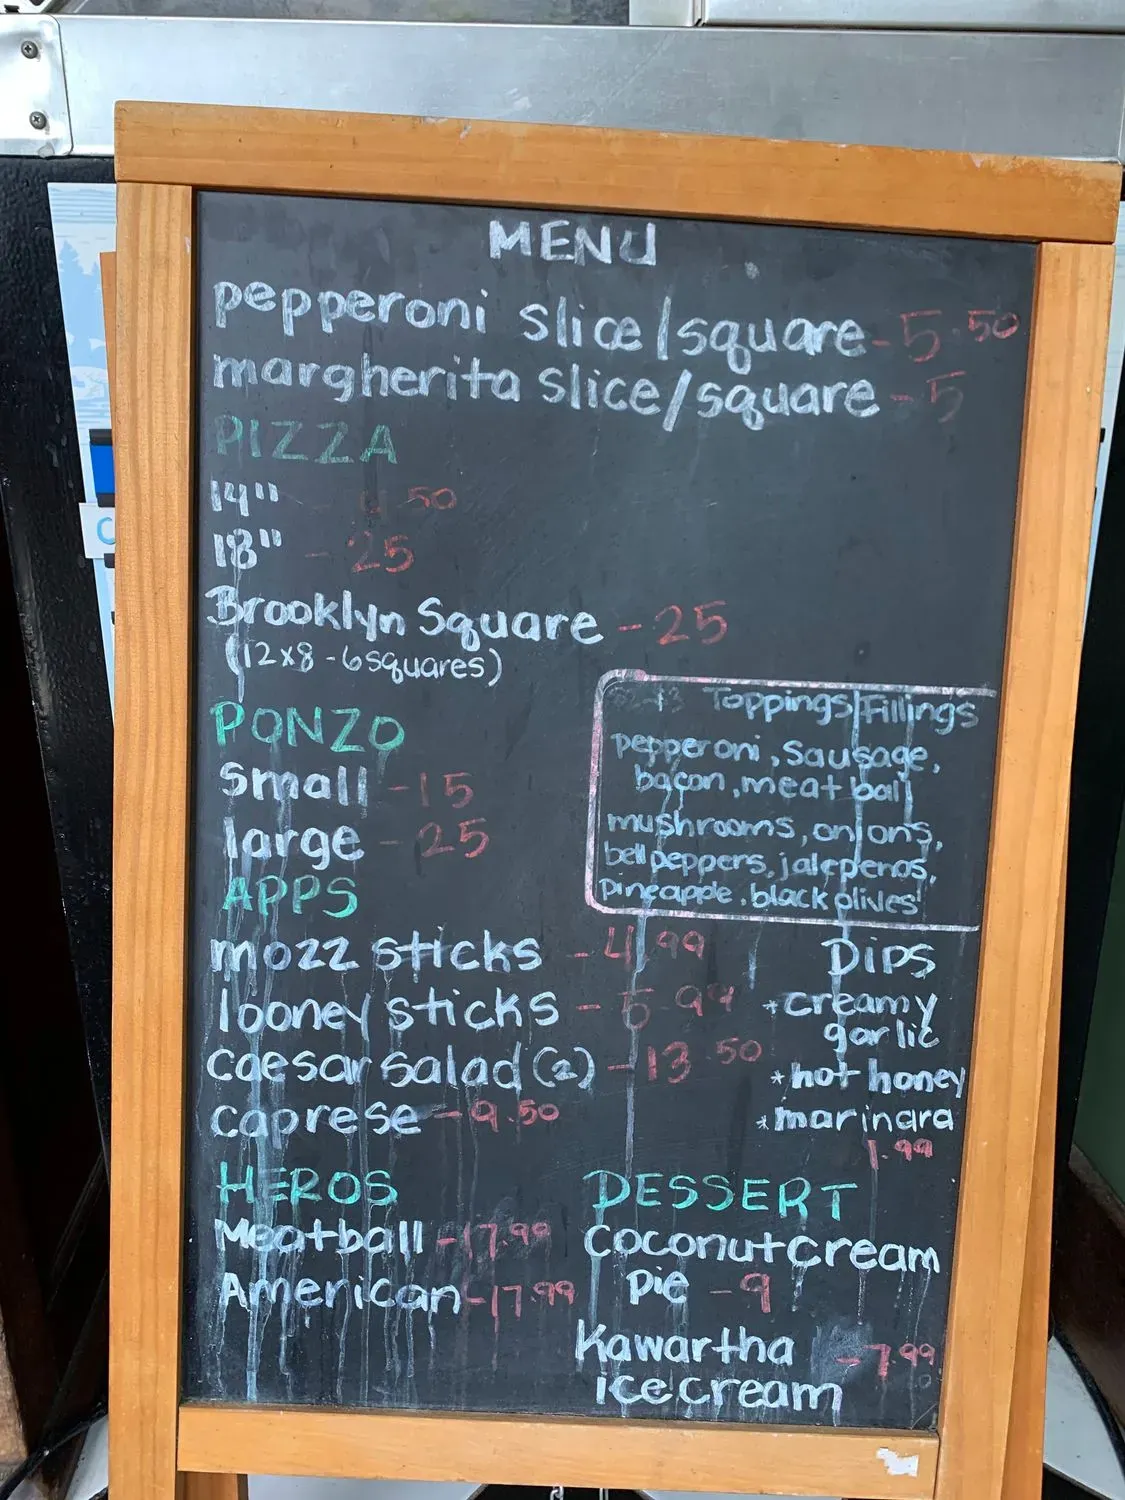 MENU
pepperoni slice/square - 5.50
margherita slice/square - 5
PIZZA
14"
18" - 25
Brooklyn Square - 25
(12x8 - 6 squares)
PONZO
small - 15
large - 25
Toppings/Fillings
pepperoni, sausage,
bacon, meat ball
mushrooms, onions,
bell peppers, jalepenos,
pineapple, black olives
APPS
mozz sticks - 4.99
looney sticks - 5.99
caesar salad (2) - 13.50
caprese - 9.50
Dips
*creamy
garlic
*hot honey
*marinara
1.99
HEROS
Meatball - 17.99
American - 17.99
DESSERT
Coconut cream
Pie - 9
Kawartha - 7.99
ice cream